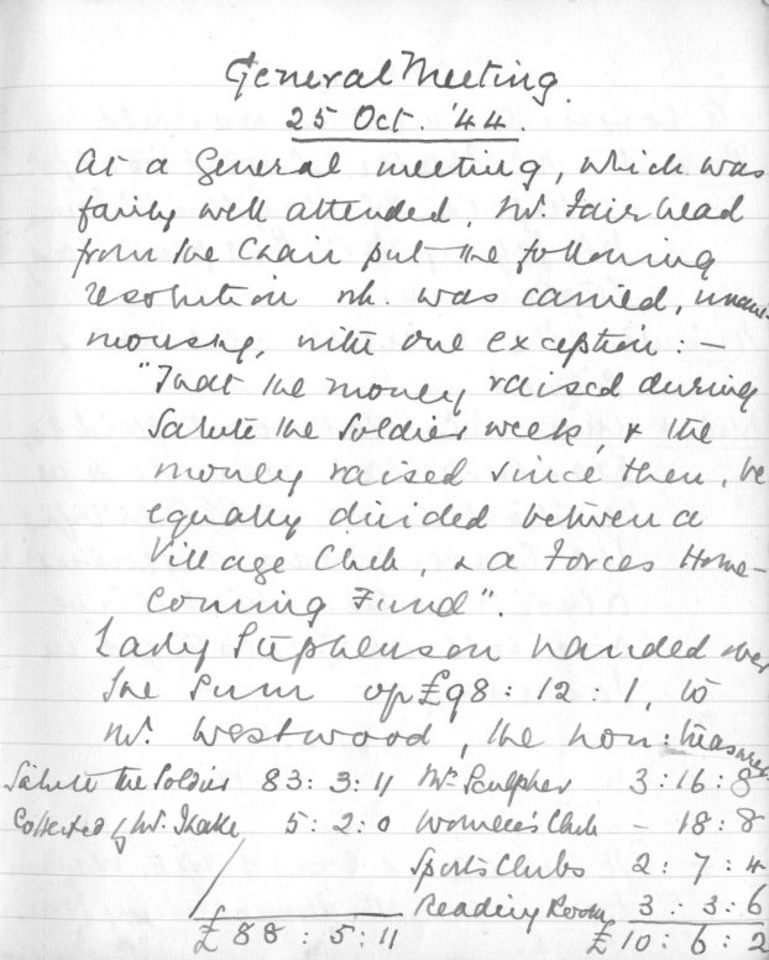 General Meeting.
25 Oct. '44.
At a General meeting, which was
fairly well attended, Mr. Fairhead
from the Chair put the following
resolution wh. was carried, unani-
mously, with one exception: -
"That the money raised during
Salute the Soldier week, & the
money raised since then, be
equally divided between a
Village Club, & a Forces Home-
Coming Fund".
Lady Stephenson handed over
the sum of £98 : 12 : 1, to
Mr. Westwood, the hon: treasurer.
Salute the Soldier 83 : 3 : 11 Mr Sculpher 3 : 16 : 8
Collected by Mr. 5 : 2 : 0 Women's Club - 18 : 8
Sports Clubs 2 : 7 : 4
Reading Room 3 : 3 : 6
£88 : 5 : 11 £10 : 6 : 2